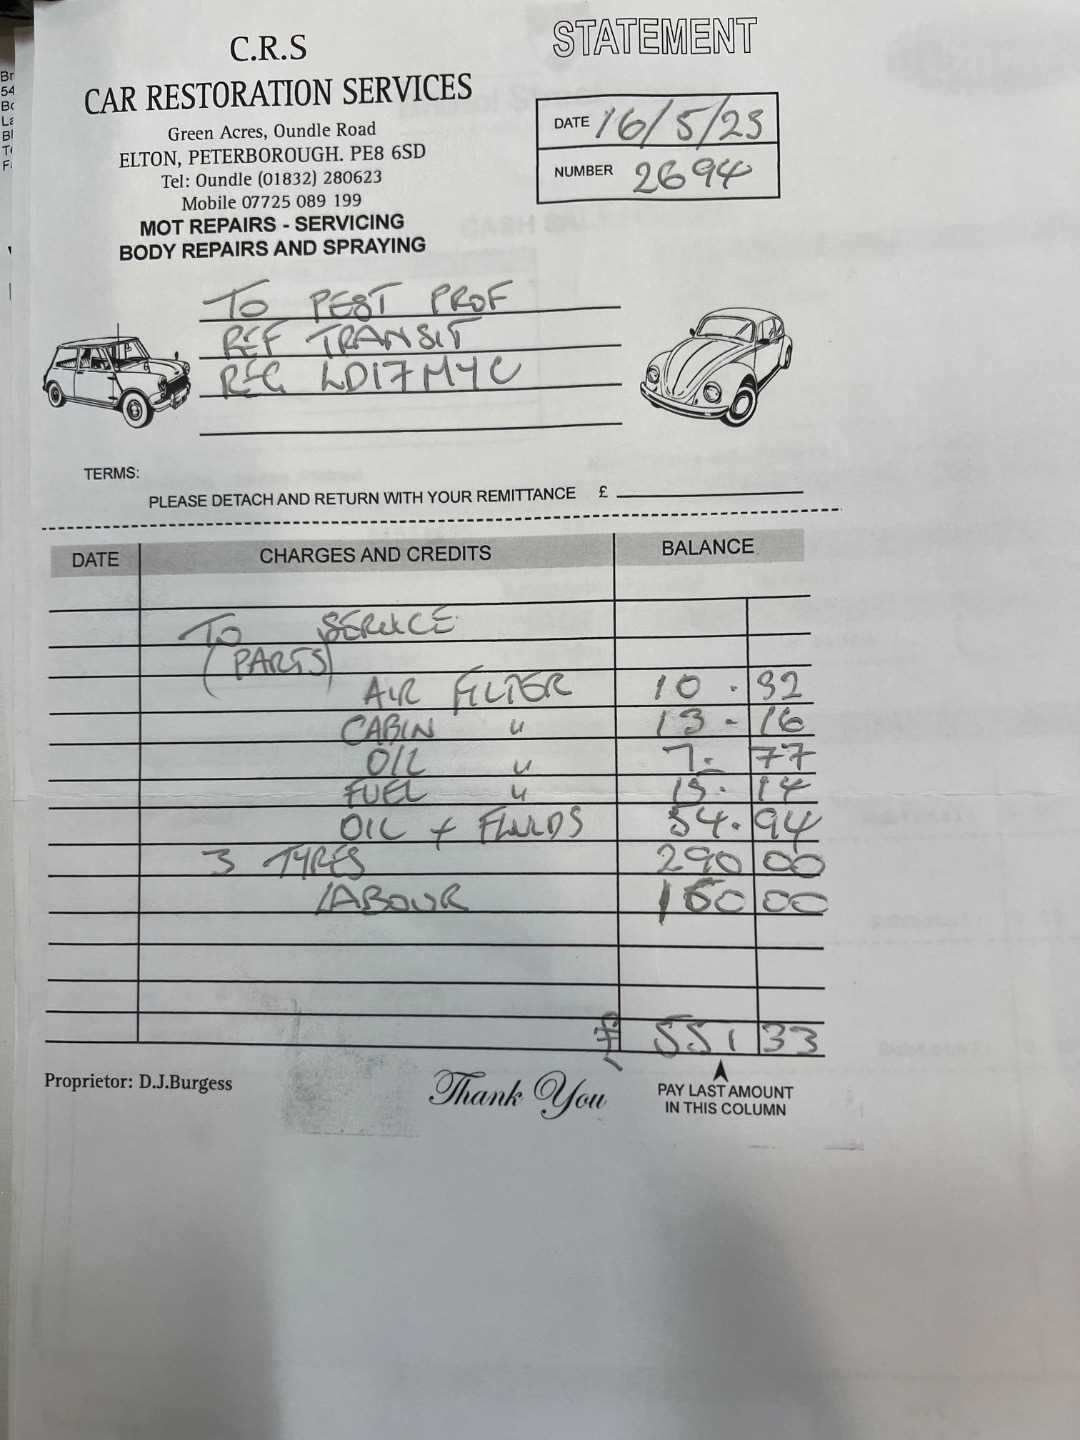 C.R.S
CAR RESTORATION SERVICES
Green Acres, Oundle Road
ELTON, PETERBOROUGH. PE8 6SD
Tel: Oundle (01832) 280623
Mobile 07725 089 199
MOT REPAIRS - SERVICING
BODY REPAIRS AND SPRAYING
STATEMENT
DATE 16/5/25
NUMBER 2694
TO PEST PROF
REF TRANSIT
REG LD17MYC
TERMS:
PLEASE DETACH AND RETURN WITH YOUR REMITTANCE £
DATE CHARGES AND CREDITS BALANCE
TO SERVICE
(PARTS)
AIR FILTER 10.32
CABIN " 13-16
OIL " 7-77
FUEL " 15.14
OIL + FLUIDS 54.94
3 TYRES 290 00
LABOUR 160 00
£ 551 33
Proprietor: D.J.Burgess
Thank You
PAY LAST AMOUNT
IN THIS COLUMN